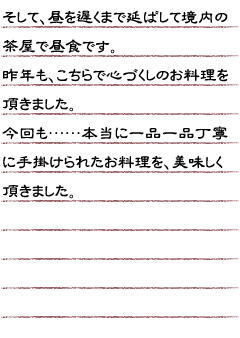 そして、昼を遅くまで延ばして境内の
茶屋で昼食です。
昨年も、こちらで心づくしのお料理を
頂きました。
今回も……本当に一品一品丁寧
に手掛けられたお料理を、美味しく
頂きました。